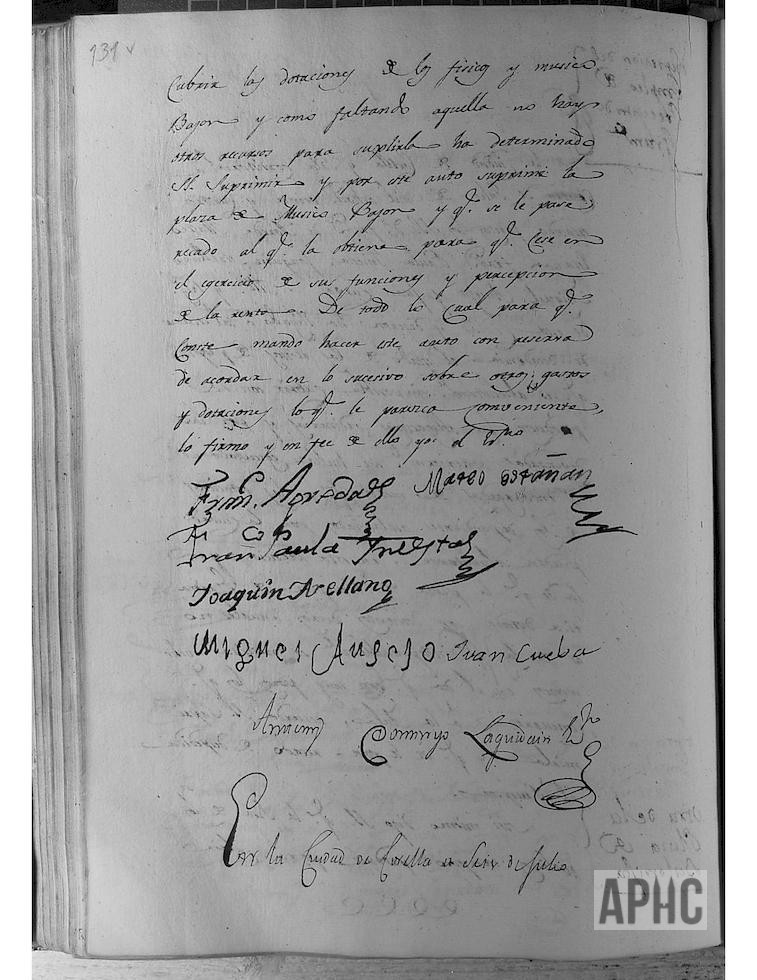 131 v
Cubrir las dotaciones de los fisicos y musico
Bajon y como faltando aquella no hay
otros recursos para suplirla ha determinado
SS. Suprimir y por este auto suprime la
plaza de Musico Bajon y q.e se le pase
recado al q.e la obtiene para q.e Cese en
el egercicio de sus funciones y percepcion
de la renta. De todo lo Cual para q.e
Conste mando hacer este auto con reserva
de acordar en lo sucesivo sobre otros gastos
y dotaciones lo q.e le paresca conveniente,
lo firmo y en fee de ello yo el Ess.no
Agreda Mateo
Fran.co Paula
Joaquin Arellano
Miguel Juan Cueba
Ante mi Domingo Laquidain Ess.no
En la Ciudad de Corella a Seis de Julio
APHC